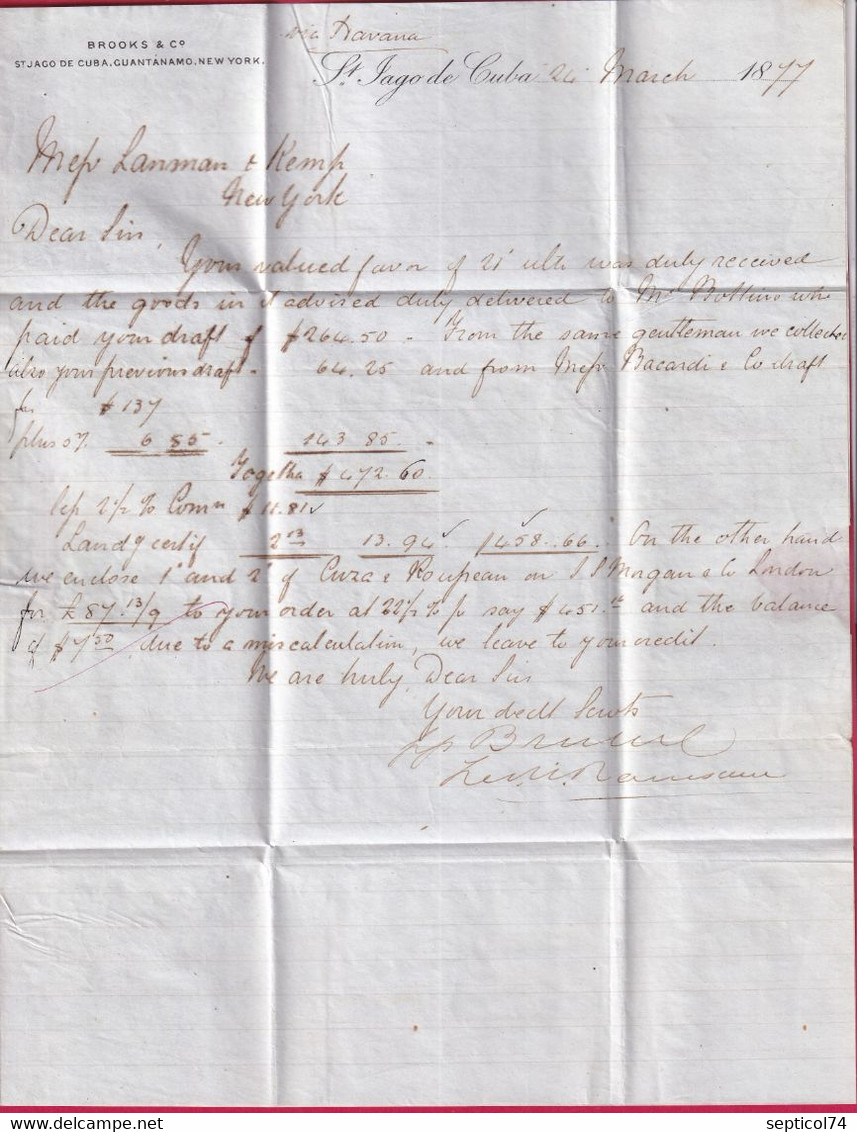 via Havana
BROOKS & Co
ST JAGO DE CUBA, GUANTÁNAMO, NEW YORK.
St. Jago de Cuba 24 March 1877
Messrs Lanman & Kemp
New York
Dear Sirs,
Your valued favor of 21st ulto was duly received
and the goods in it advised duly delivered to Mr Bottino who
paid your draft of $264.50 - From the same gentleman we collected
also your previous draft - 64.25 and from Messrs Bacardi & Co draft
for $137
plus 5% 6 85 . 143 85. -
Together $472.60.
less 2 1/2 % Comn $ 11.81
Landg certif 2 13 13.94 $458.66. On the other hand
we enclose 1st and 2d of on J S Morgan & Co London
for £87.13/9 to your order at 22 1/2 % p say $451.16 and the balance
of $7.50 due to a miscalculation, we leave to your credit.
We are truly, Dear Sirs
Your obedt Servts
pp